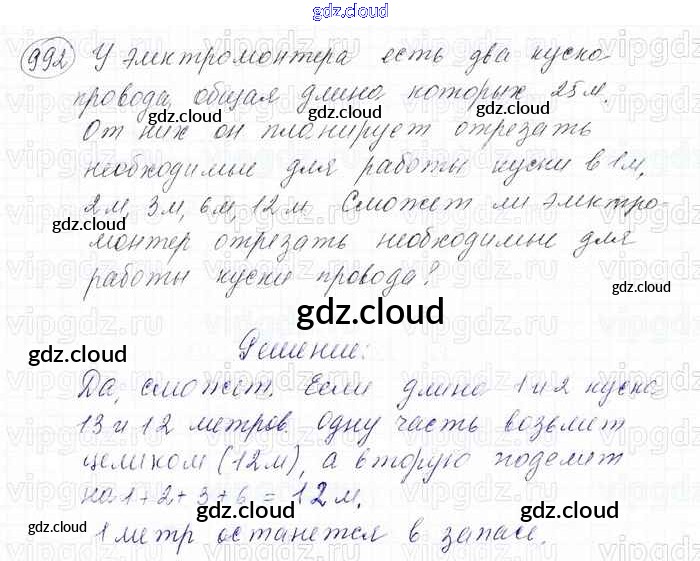 gdz.cloud
992 У электромонтера есть два куска
провода, общая длина которых 25 м.
От них он планирует отрезать
необходимые для работы куски в 1 м,
2 м, 3 м, 6 м, 12 м. Сможет ли электро-
монтер отрезать необходимые для
работы куски провода?
Решение:
Да, сможет. Если длина 1 и 2 куска
13 и 12 метров. Одну часть возьмит
целиком (12 м), а вторую поделит
на 1+2+3+6 = 12 м.
1 метр останется в запасе.